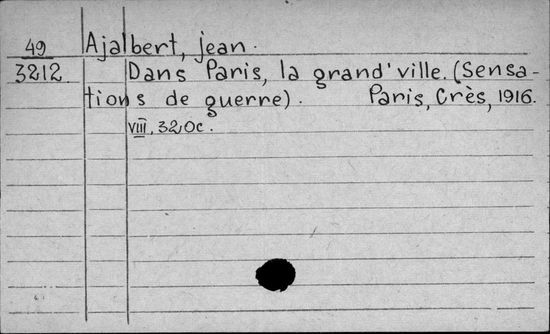 49 Ajalbert, jean.
3212 Dans Paris, la grand' ville. (Sensa-
tions de guerre). Paris, Crès, 1916.
VIII, 320c.